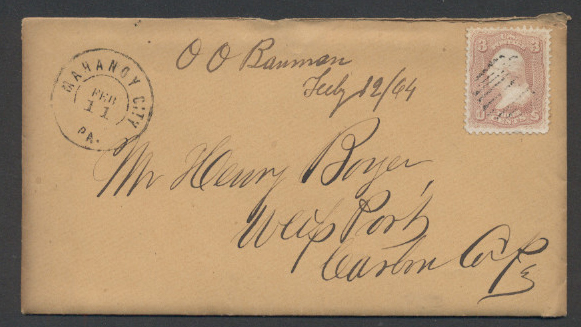 MAHANOY CITY
FEB
11
PA.
O O Bauman
Feby 12/64
3 3
Mr Henry Boyer,
Weis Port
Carbon Co Pa